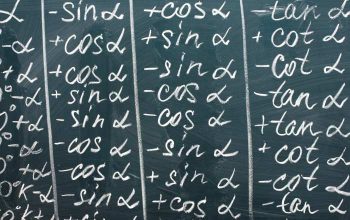 α -sin α +cos α -tan α
-α +cos α +sin α +cot α
+α +cos α -sin α -cot α
°-α +sin α -cos α -tan α
°+α -sin α -cos α +tan α
°-α -cos α -sin α +cot α
+α -cos α +sin α -cot α
0°k-α -sin α +cos α -tan α